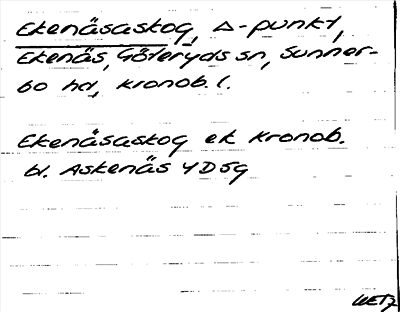 Ekenäsaskog, Δ-punkt,
Ekenäs, Göteryds sn, Sunner-
bo hd, Kronob. l.
Ekenäsaskog ek Kronob.
bl. Askenäs 4D5g
WETZ